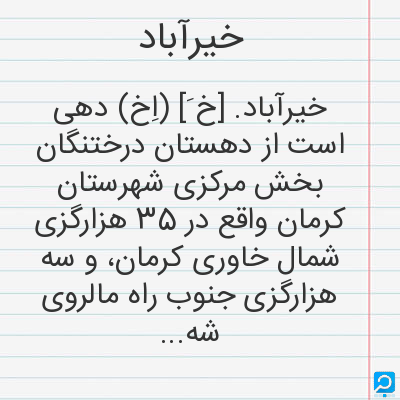 خیرآباد
خیرآباد. [خ َ] (اِخ) دهی
است از دهستان درختنگان
بخش مرکزی شهرستان
کرمان واقع در ۳۵ هزارگزی
شمال خاوری کرمان، و سه
هزارگزی جنوب راه مالروی
شه...